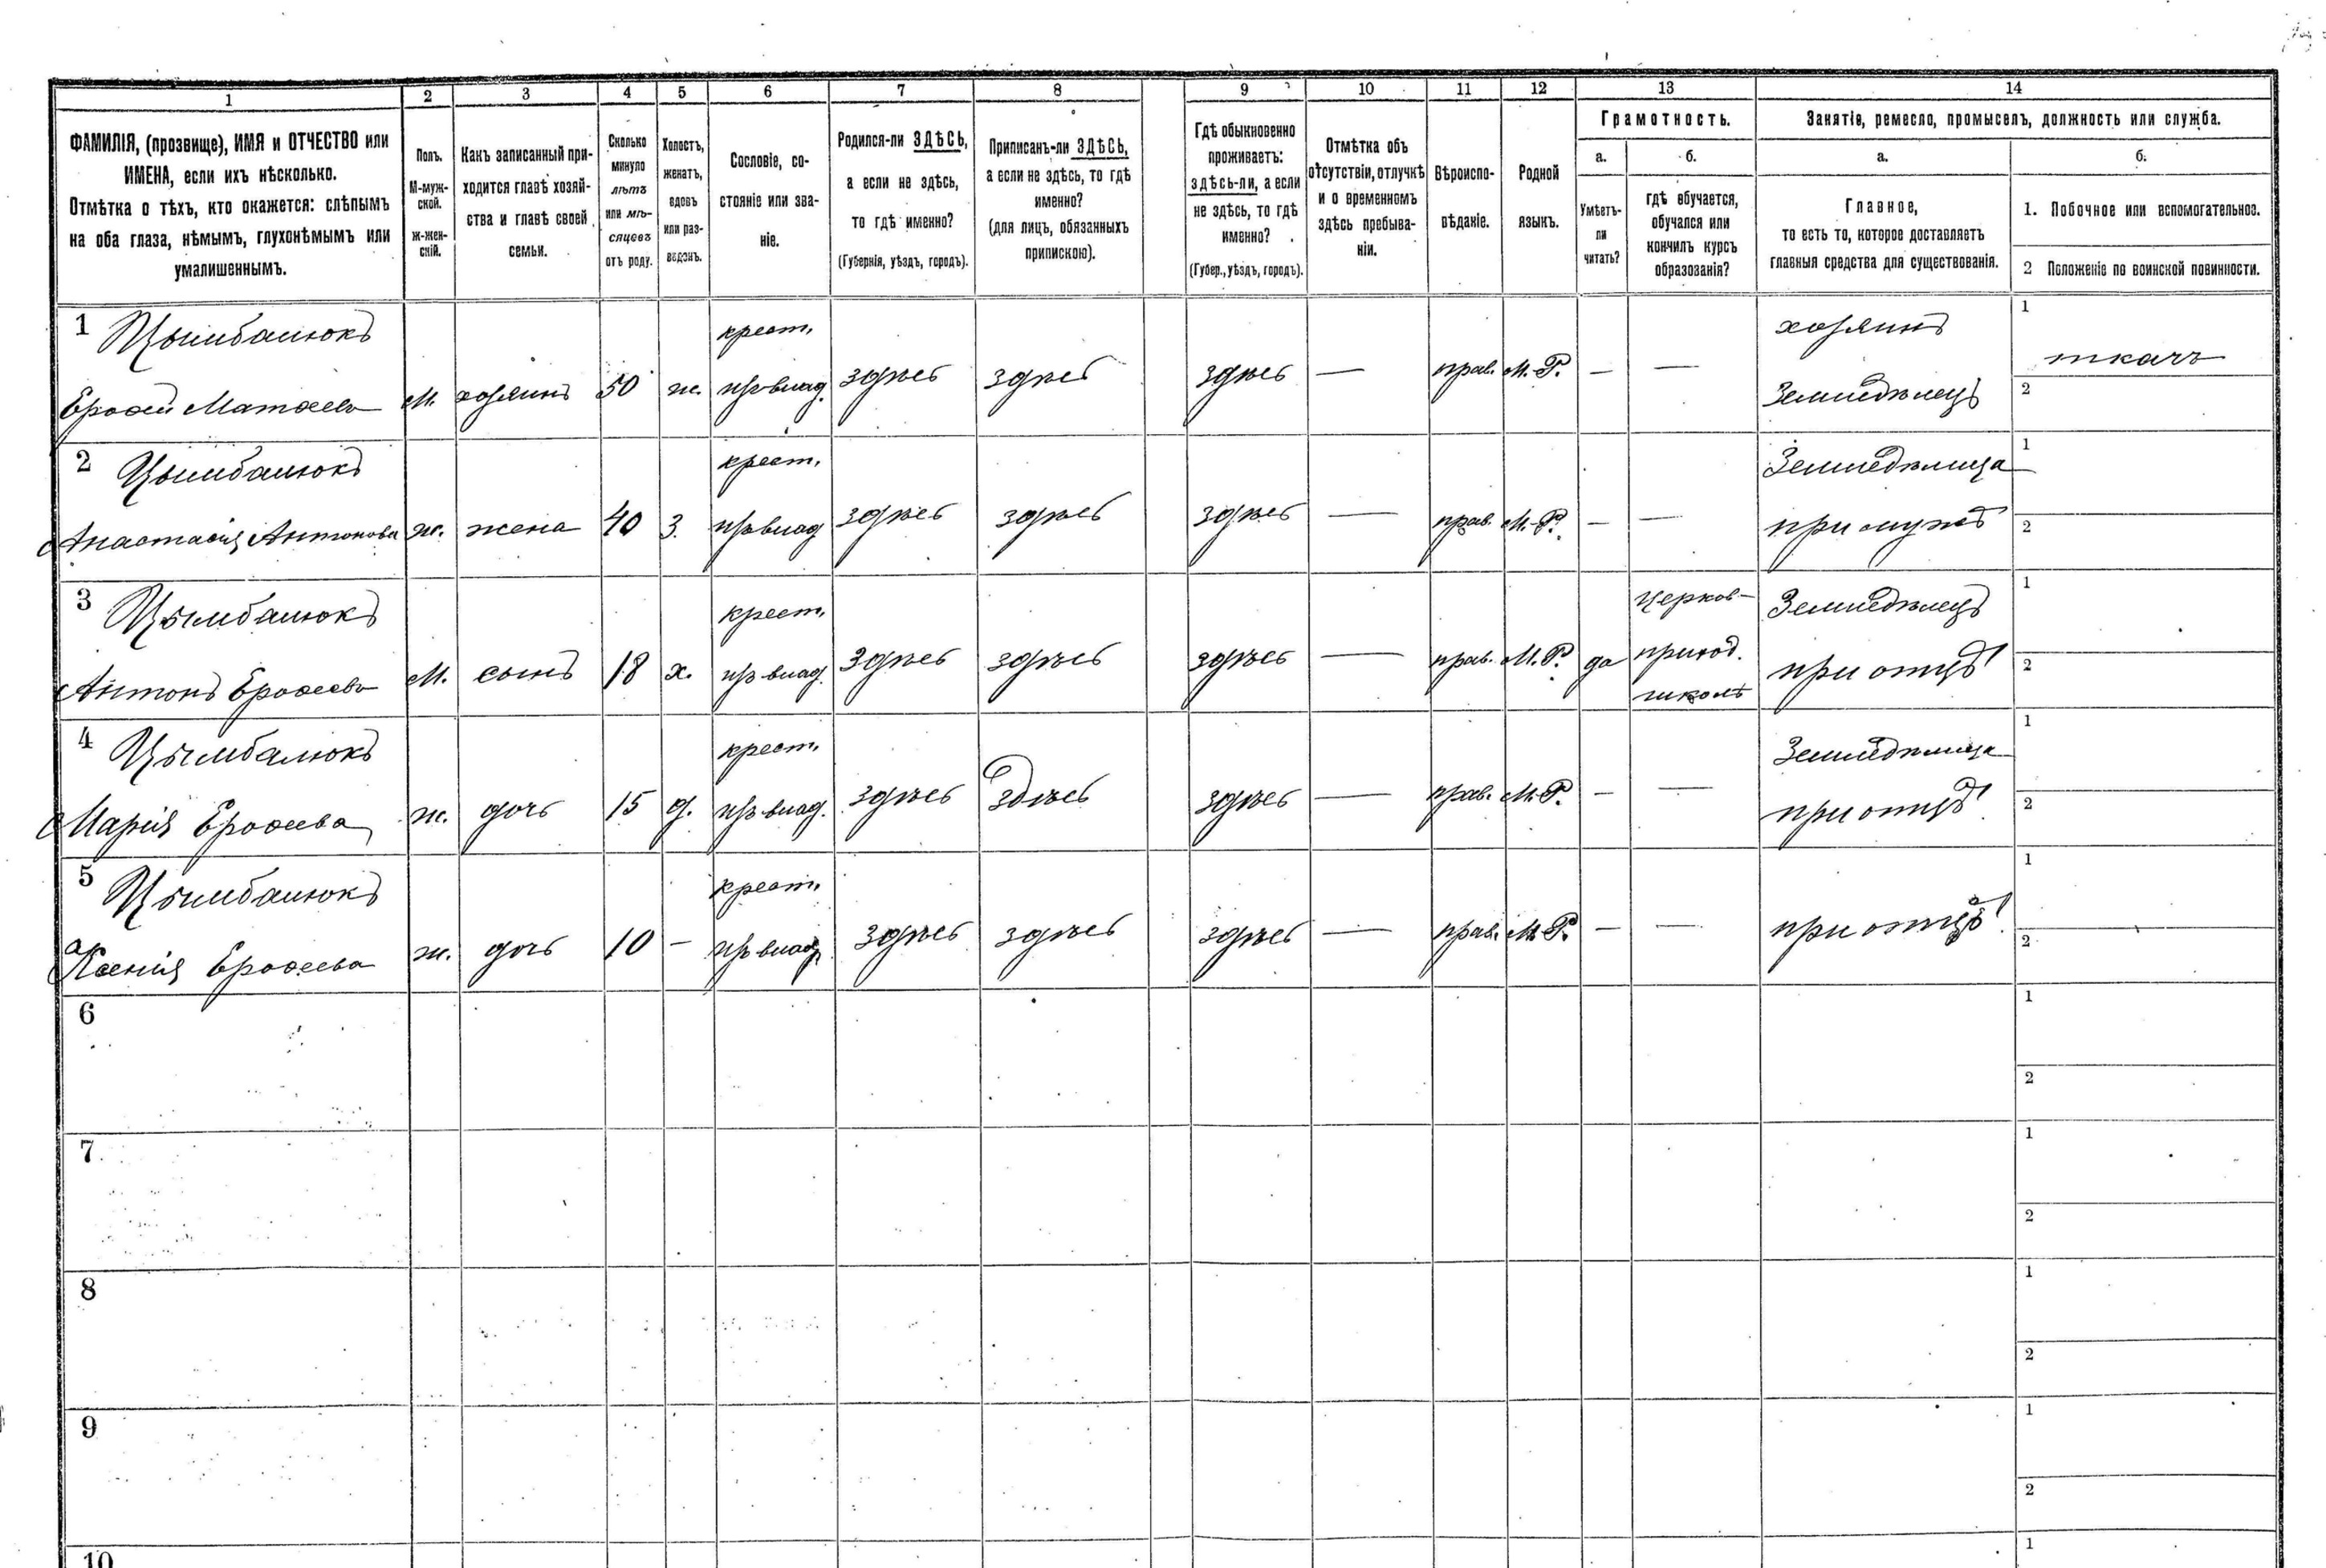 1 2 3 4 5 6 7 8 9 10 11 12 13 14
ФАМИЛІЯ, (прозвище), ИМЯ и ОТЧЕСТВО или
ИМЕНА, если ихъ нѣсколько.
Отмѣтка о тѣхъ, кто окажется: слѣпымъ
на оба глаза, нѣмымъ, глухонѣмымъ или
умалишеннымъ.
Полъ.
М-муж-
ской.
ж-жен-
скій.
Какъ записанный при-
ходится главѣ хозяй-
ства и главѣ своей
семьи.
Сколько
минуло
лѣтъ
или мѣ-
сяцевъ
отъ роду.
Холостъ,
женатъ,
вдовъ
или раз-
веденъ.
Сословіе, со-
стояніе или зва-
ніе.
Родился-ли ЗДѢСЬ,
а если не здѣсь,
то гдѣ именно?
(Губернія, уѣздъ, городъ).
Приписанъ-ли ЗДѢСЬ,
а если не здѣсь, то гдѣ
именно?
(для лицъ, обязанныхъ
припискою).
Гдѣ обыкновенно
проживаетъ:
здѣсь-ли, а если
не здѣсь, то гдѣ
именно?
(Губер., уѣздъ, городъ).
Отмѣтка объ
отсутствіи, отлучкѣ
и о временномъ
здѣсь пребыва-
ніи.
Вѣроиспо-
вѣданіе.
Родной
языкъ.
Грамотность.
а.
Умѣетъ-
ли
читать?
б.
гдѣ обучается,
обучался или
кончилъ курсъ
образованія?
Занятіе, ремесло, промыселъ, должность или служба.
а.
Главное,
то есть то, которое доставляетъ
главныя средства для существованія.
б.
1. Побочное или вспомогательное.
2 Положеніе по воинской повинности.
1 Цымбалюкъ крест. хозяинъ 1
ткачъ
Ерофей Матѳеевъ М. хозяинъ 50 ж. из влад. здѣсь здѣсь здѣсь — прав. М.-Р. — — Земледѣлецъ 2
2 Цымбалюкъ крест. Земледѣлица 1
Анастасія Антонова ж. жена 40 з. из влад здѣсь здѣсь здѣсь — прав. М.-Р. — — при мужѣ 2
3 Цымбалюкъ крест. церков- Земледѣлецъ 1
Антонъ Ерофеевъ М. сынъ 18 х. из влад. здѣсь здѣсь здѣсь — прав. М.Р. да приход. при отцѣ 2
школѣ
4 Цымбалюкъ крест. Земледѣлица 1
Марія Ерофеева ж. дочь 15 д. из влад. здѣсь здѣсь здѣсь — прав. М.Р. — — при отцѣ 2
5 Цымбалюкъ крест. 1
Ксенія Ерофеева ж. дочь 10 — из влад. здѣсь здѣсь здѣсь — прав. М.Р. — — при отцѣ 2
6 1
2
7 1
2
8 1
2
9 1
2
10 1